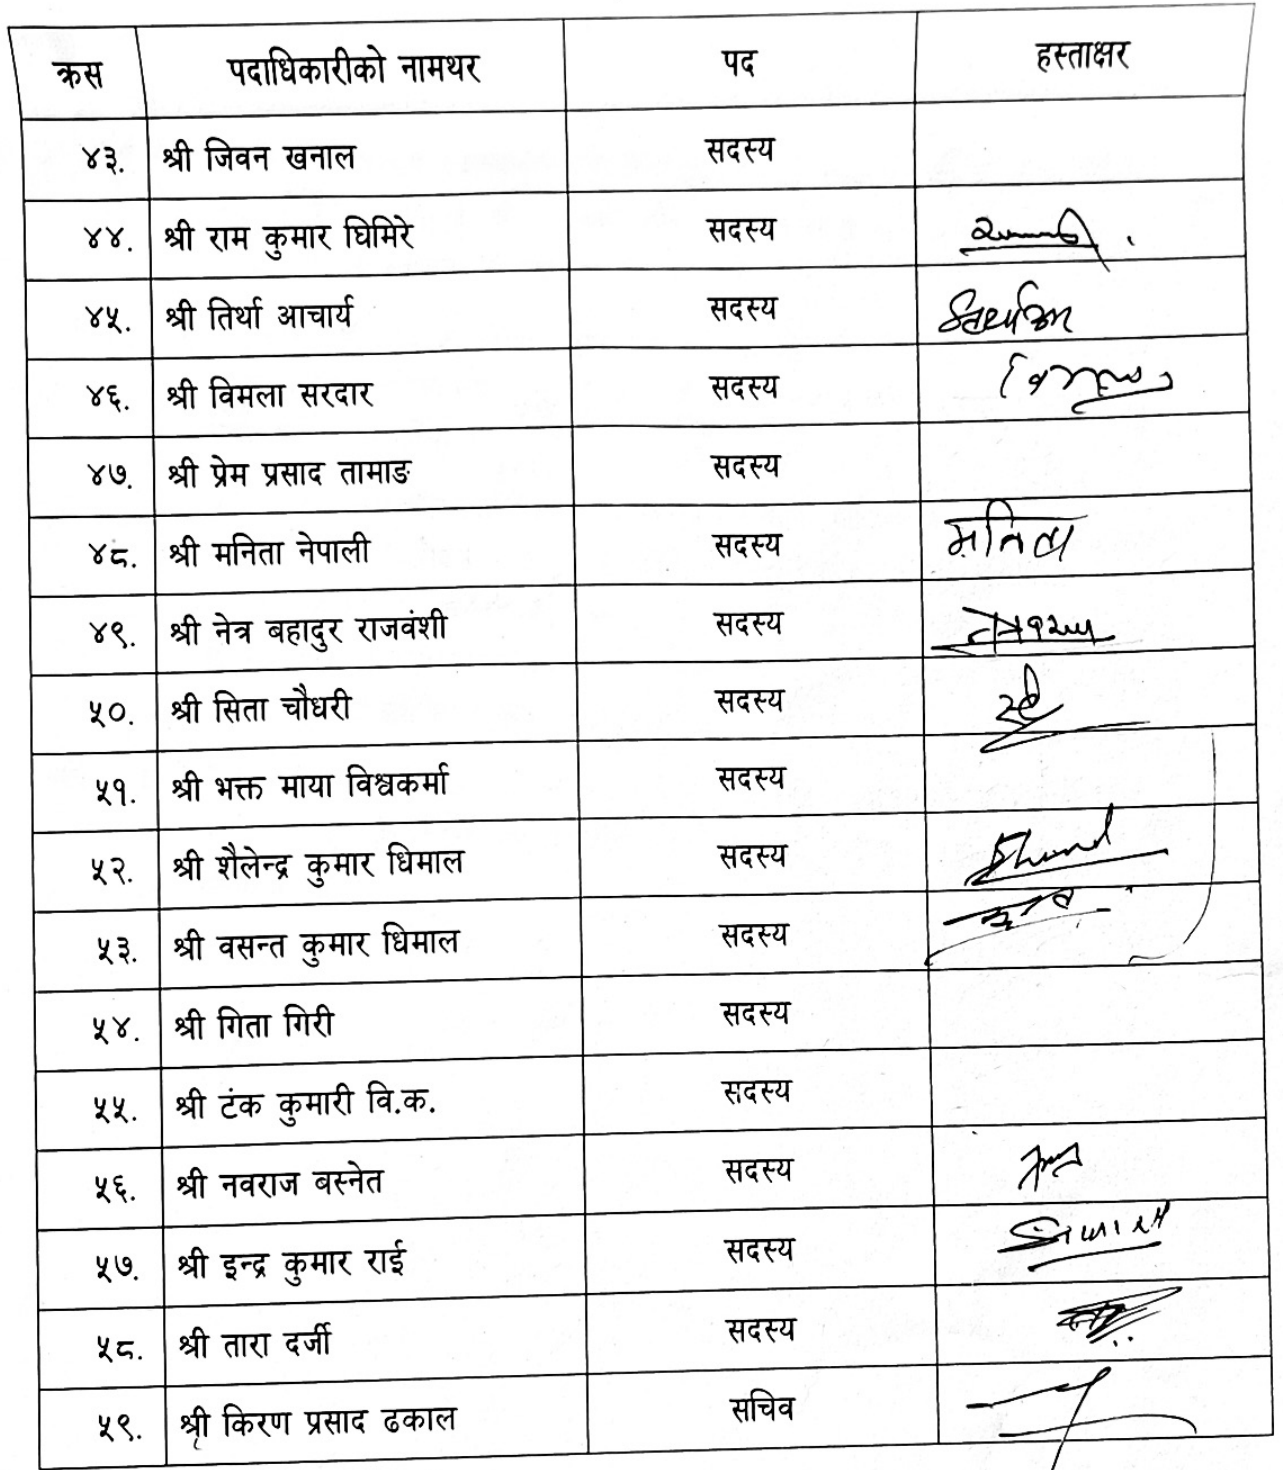 क्रस पदाधिकारीको नामथर पद हस्ताक्षर
४३. श्री जिवन खनाल सदस्य
४४. श्री राम कुमार घिमिरे सदस्य
४५. श्री तिर्था आचार्य सदस्य
४६. श्री विमला सरदार सदस्य
४७. श्री प्रेम प्रसाद तामाङ सदस्य
४८. श्री मनिता नेपाली सदस्य मनिता
४९. श्री नेत्र बहादुर राजवंशी सदस्य
५०. श्री सिता चौधरी सदस्य
५१. श्री भक्त माया विश्वकर्मा सदस्य
५२. श्री शैलेन्द्र कुमार धिमाल सदस्य
५३. श्री वसन्त कुमार धिमाल सदस्य
५४. श्री गिता गिरी सदस्य
५५. श्री टंक कुमारी वि.क. सदस्य
५६. श्री नवराज बस्नेत सदस्य
५७. श्री इन्द्र कुमार राई सदस्य
५८. श्री तारा दर्जी सदस्य
५९. श्री किरण प्रसाद ढकाल सचिव